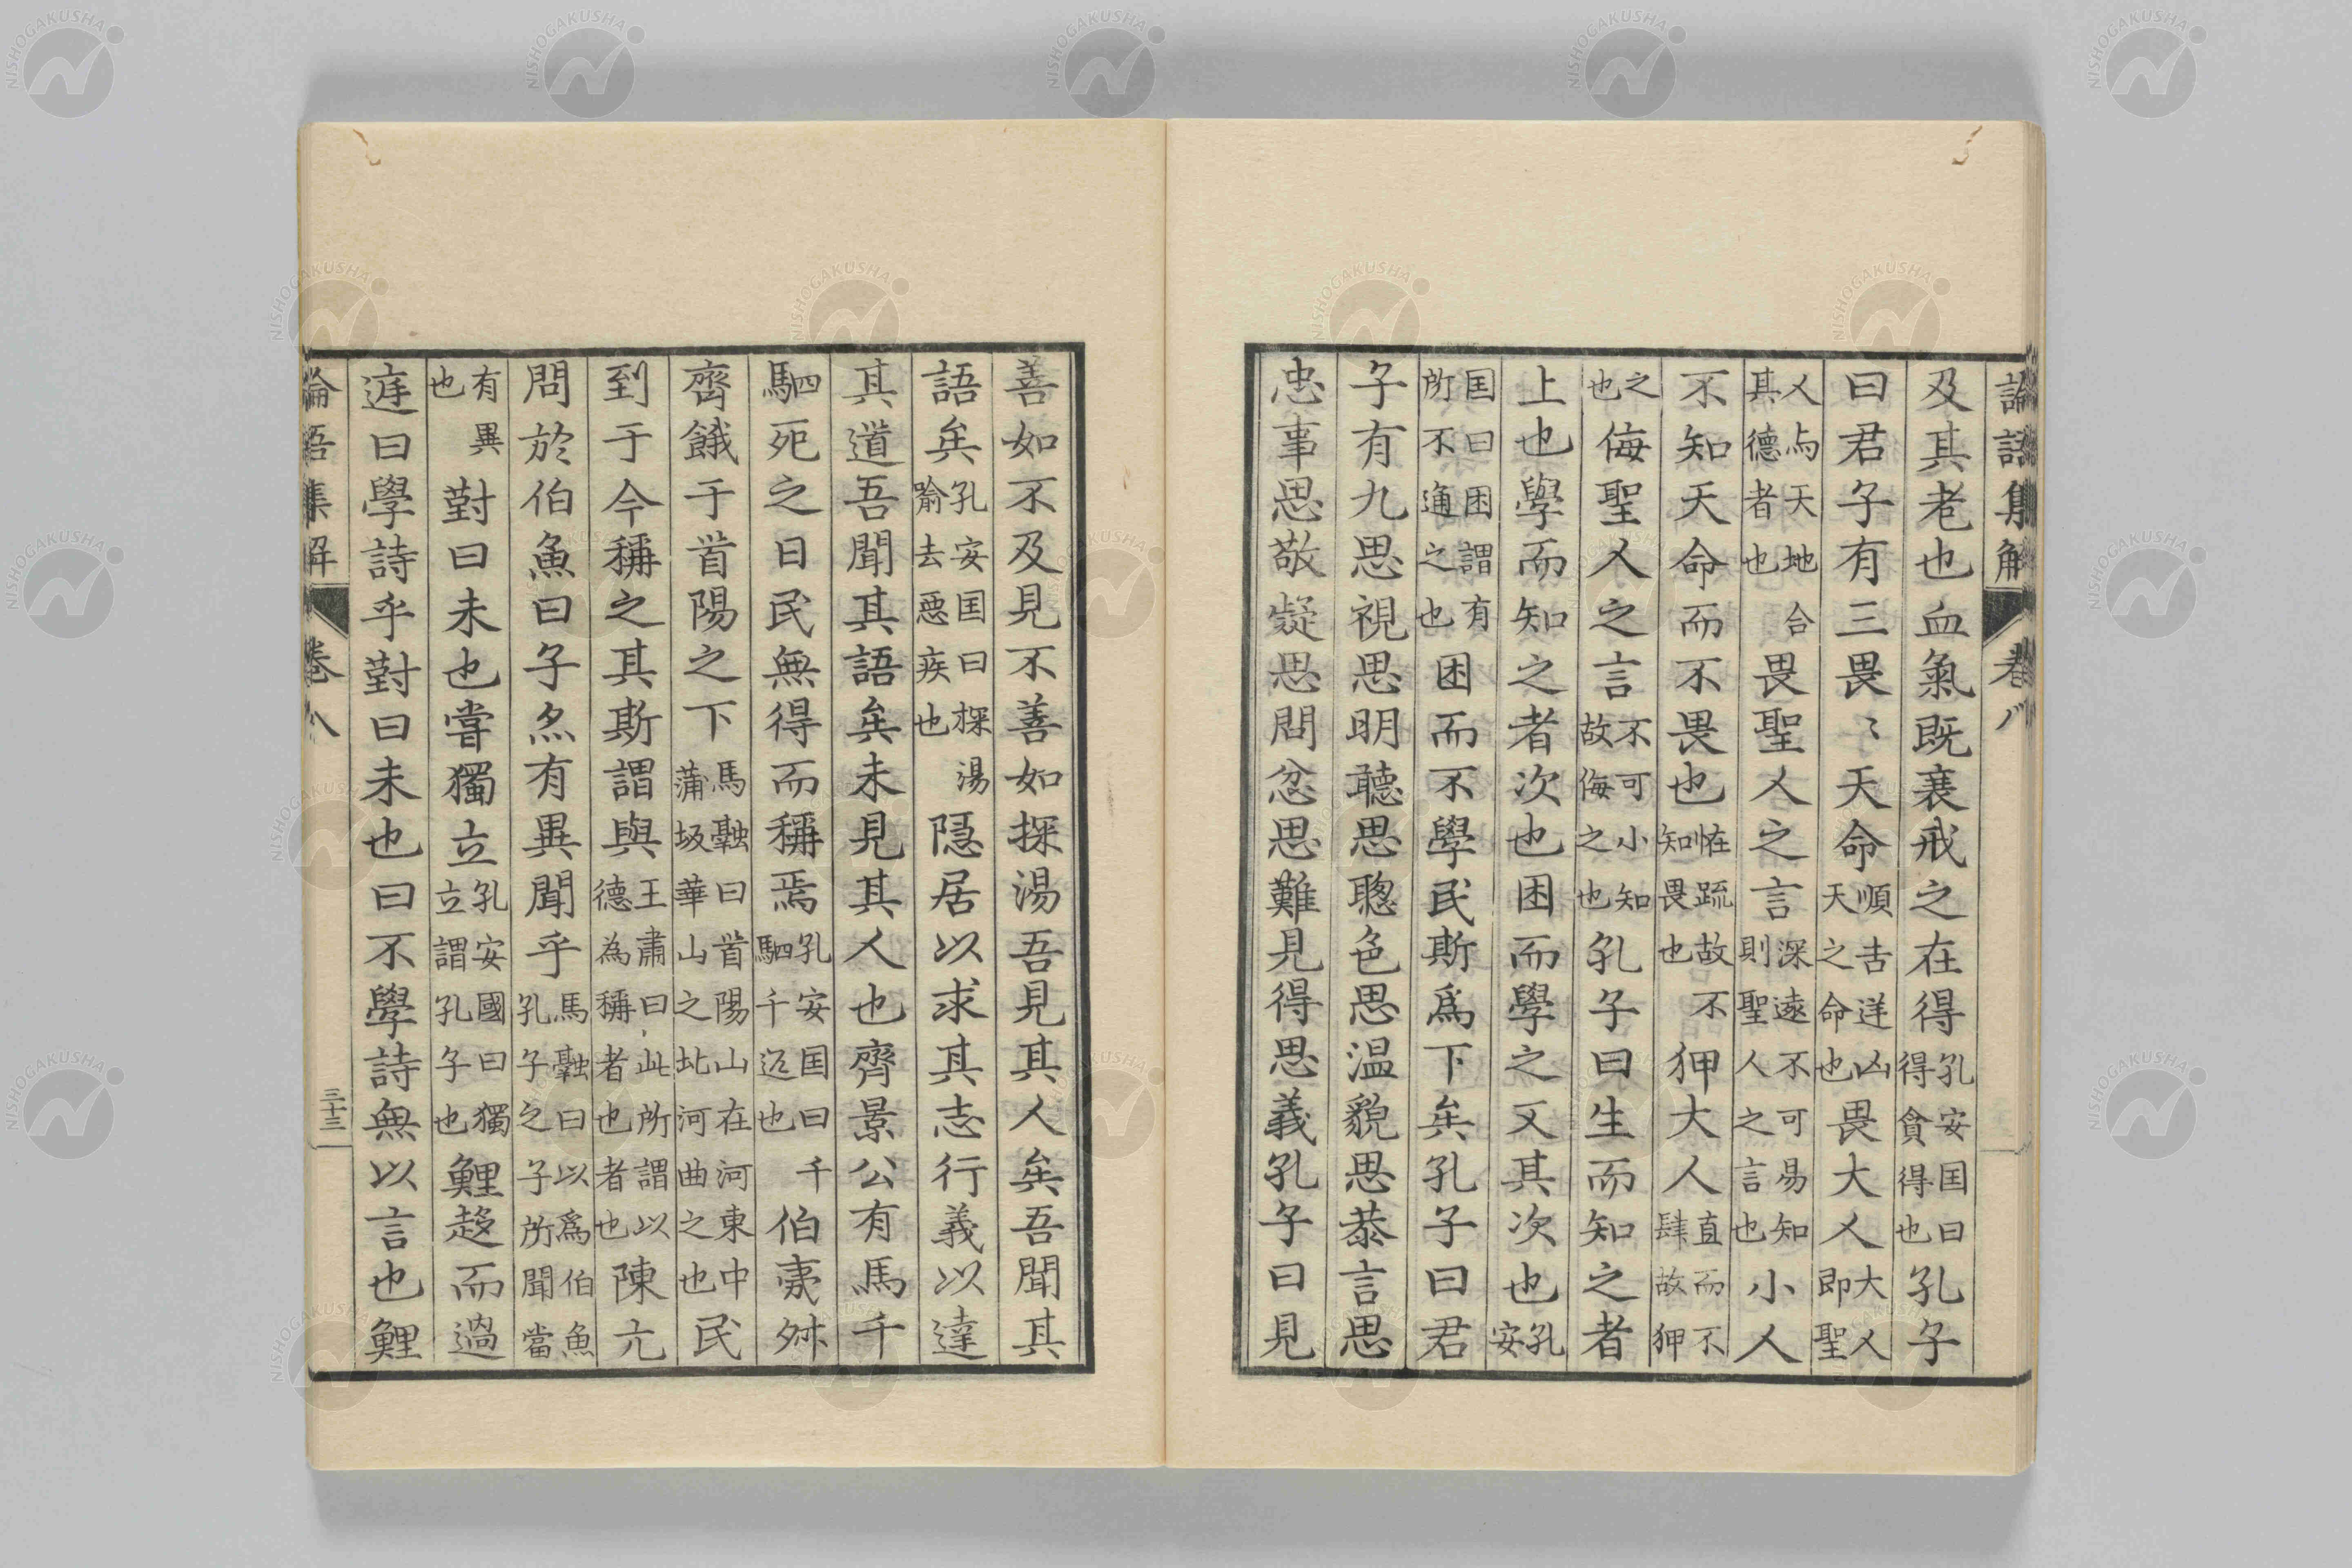 論語集解 卷八
及其老也血氣既衰戒之在得孔安囯曰得貪得也孔子
曰君子有三畏〻天命順吉逆凶天之命也畏大人大人即聖
人与天地合其德者也畏聖人之言深遠不可易知則聖人之言也小人
不知天命而不畏也恠疏故不知畏也狎大人直而不肆故狎
之也侮聖人之言不可小知故侮之也孔子曰生而知之者
上也學而知之者次也困而學之又其次也孔安
囯曰困謂有所不通之也困而不學民斯爲下矣孔子曰君
子有九思視思明聽思聰色思温貌思恭言思
忠事思敬疑思問忿思難見得思義孔子曰見
善如不及見不善如探湯吾見其人矣吾聞其
語矣孔安囯曰探湯喻去惡疾也隱居以求其志行義以達
其道吾聞其語矣未見其人也齊景公有馬千
駟死之日民無得而稱焉孔安囯曰千駟千疋也伯夷叔
齊餓于首陽之下馬融曰首陽山在河東中蒲坂華山之北河曲之也民
到于今稱之其斯謂與王肅曰此所謂以德為稱者也者也陳亢
問於伯魚曰子亦有異聞乎馬融曰以爲伯魚孔子之子所聞當
有異也對曰未也嘗獨立孔安國曰獨立謂孔子也鯉趍而過
庭曰學詩乎對曰未也曰不學詩無以言也鯉
論語集解 卷八 三十三
NISHOGAKUSHA